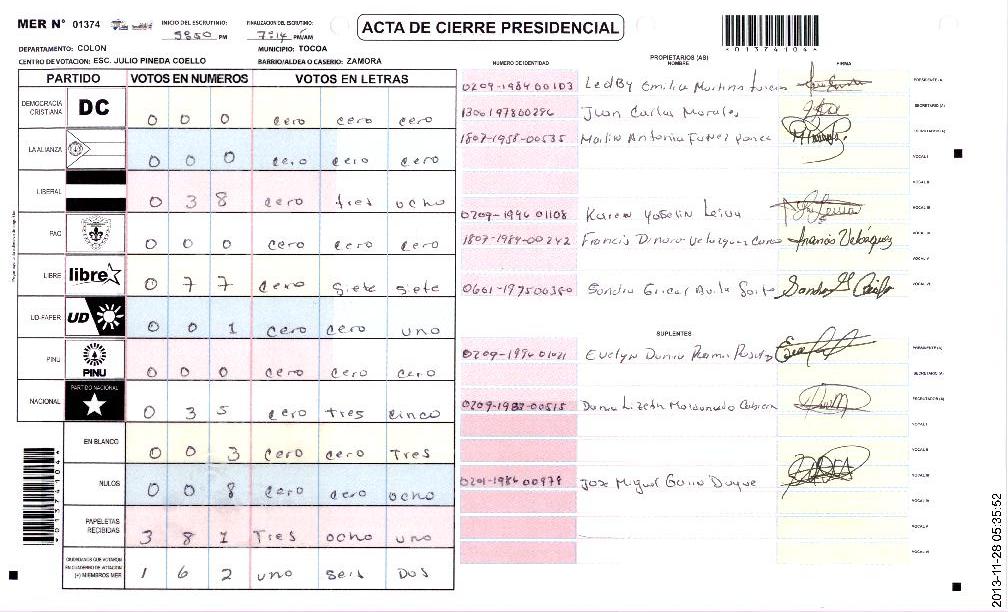 MER N° 01374
INICIO DEL ESCRUTINIO: PM
FINALIZACION DEL ESCRUTINIO: 7:14 PM/AM
ACTA DE CIERRE PRESIDENCIAL
*01374104*
DEPARTAMENTO: COLON
MUNICIPIO: TOCOA
CENTRO DE VOTACION: ESC. JULIO PINEDA COELLO
BARRIO/ALDEA O CASERIO: ZAMORA
PARTIDO VOTOS EN NUMEROS VOTOS EN LETRAS
DEMOCRACIA CRISTIANA DC 0 0 0 cero cero cero
LA ALIANZA 0 0 0 cero cero cero
LIBERAL 0 3 8 cero tres ocho
PAC 0 0 0 cero cero cero
LIBRE libre 0 7 7 cero siete siete
UD-FAPER UD 0 0 1 cero cero uno
PINU PINU 0 0 0 cero cero cero
NACIONAL PARTIDO NACIONAL 0 3 5 cero tres cinco
EN BLANCO 0 0 3 cero cero Tres
NULOS 0 0 8 cero cero ocho
PAPELETAS RECIBIDAS 3 8 1 Tres ocho uno
CIUDADANOS QUE VOTARON EN CUADERNO DE VOTACION (+) MIEMBROS MER 1 6 2 uno seis Dos
*01374104*
NUMERO DE IDENTIDAD
PROPIETARIOS (AS)
NOMBRE
FIRMA
0209-1984 00103 Emilia Martinez PRESIDENTE/A
Juan Carlos Morales SECRETARIO (A)
1807-1958-00535 Antonia
VOCAL I
VOCAL II
0209-1996 01108 Karen Yoselin Leiva VOCAL III
1807-1984-00242 Francis Velazquez Francis Velásquez
VOCAL V
Sandra Avila VOCAL VI
SUPLENTES
Evelyn PRESIDENTE (A)
SECRETARIO (A)
0209-1987-00515 Lizeth Maldonado ESCRUTADOR (A)
VOCAL I
VOCAL II
0201-1986 00978 Jose Miguel Duque VOCAL III
VOCAL IV
VOCAL V
VOCAL VI
2013-11-28 05:35:52